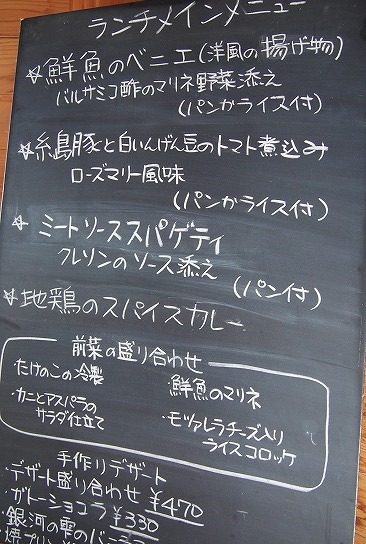 ランチメインメニュー
☆鮮魚のベニエ(洋風の揚げ物)
バルサミコ酢のマリネ野菜添え
(パンかライス付)
☆糸島豚と白いんげん豆のトマト煮込み
ローズマリー風味
(パンかライス付)
☆ミートソーススパゲティ
クレソンのソース添え
(パン付)
☆地鶏のスパイスカレー
前菜の盛り合わせ
・たけのこの冷製
・鮮魚のマリネ
・カニとアスパラの
サラダ仕立て
・モッツァレラチーズ入り
ライスコロッケ
手作りデザート
・デザート盛り合わせ ¥470
・ガトーショコラ ¥330
・銀河の雫のバニラ
・焼プリン